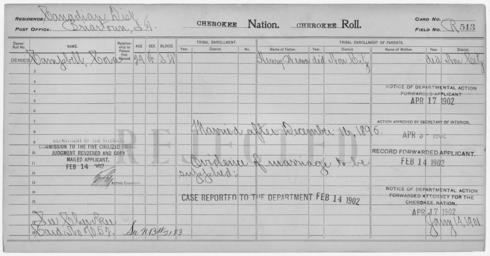 RESIDENCE: Canadian Dist
POST OFFICE: Briartown, I.T.
CHEROKEE Nation. CHEROKEE Roll.
CARD NO.
FIELD NO. R 513
NAME.
AGE SEX BLOOD
TRIBAL ENROLLMENT.
Year. District. No.
TRIBAL ENROLLMENT OF PARENTS.
Name of Father. Year. District. Name of Mother. Year. District.
DENIED Campbell, 24 F I.W. Henry did Non Citz did Non Citz
NOTICE OF DEPARTMENTAL ACTION
FORWARDED APPLICANT
APR 17 1902
REJECTED
Married after December 16, 1895
ACTION APPROVED BY SECRETARY OF INTERIOR.
APR 1902
DEPARTMENT OF THE INTERIOR
COMMISSION TO THE FIVE CIVILIZED TRIBES
JUDGMENT RENDERED AND COPY
MAILED APPLICANT.
FEB 14 1902
RECORD FORWARDED APPLICANT.
FEB 14 1902
Evidence of marriage to be
supplied:
CASE REPORTED TO THE DEPARTMENT FEB 14 1902
NOTICE OF DEPARTMENTAL ACTION
FORWARDED ATTORNEY FOR THE
CHEROKEE NATION.
APR 17 1902
See Cherokee
Card No